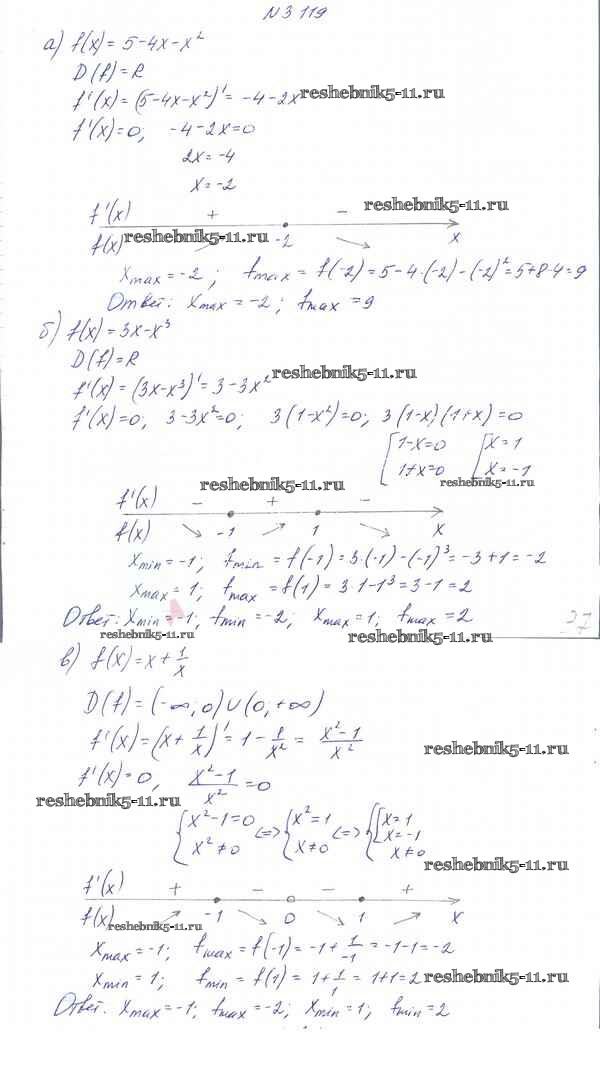 №3 119
а) f(x) = 5-4x-x²
D(f) = R
f'(x) = (5-4x-x²)' = -4-2x reshebnik5-11.ru
f'(x)=0; -4-2x=0
2x=-4
x=-2
f'(x) + - reshebnik5-11.ru
f(x) reshebnik5-11.ru -2 x
xmax=-2; fmax = f(-2) = 5-4·(-2)-(-2)² = 5+8-4=9
Ответ: xmax = -2; fmax = 9
б) f(x) = 3x-x³
D(f) = R
reshebnik5-11.ru
f'(x) = (3x-x³)' = 3-3x²
f'(x)=0; 3-3x²=0; 3(1-x²)=0; 3(1-x)(1+x)=0
[1-x=0 [x=1
1+x=0 x=-1
reshebnik5-11.ru reshebnik5-11.ru
f'(x) - + -
f(x) -1 1 x
xmin=-1; fmin = f(-1) = 3·(-1)-(-1)³ = -3+1 = -2
xmax=1; fmax = f(1) = 3·1-1³ = 3-1 = 2
Ответ: xmin=-1; fmin=-2; xmax=1; fmax=2
37
reshebnik5-11.ru reshebnik5-11.ru
в) f(x) = x + 1/x
D(f) = (-∞; 0) ∪ (0; +∞)
f'(x) = (x + 1/x)' = 1 - 1/x² = (x²-1)/x² reshebnik5-11.ru
f'(x)=0, (x²-1)/x² = 0
reshebnik5-11.ru
{x²-1=0 <=> {x²=1 <=> {[x=1
x²≠0 x≠0 x=-1
x≠0
reshebnik5-11.ru
f'(x) + - - +
f(x) reshebnik5-11.ru -1 0 1 x
xmax=-1; fmax = f(-1) = -1 + 1/-1 = -1-1 = -2
xmin=1; fmin = f(1) = 1 + 1/1 = 1+1=2 reshebnik5-11.ru
Ответ. xmax=-1; fmax=-2; xmin=1; fmin=2